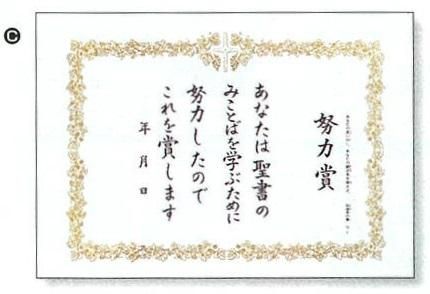 C
努力賞
あなたは聖書の
みことばを学ぶために
努力したので
これを賞します
年 月 日